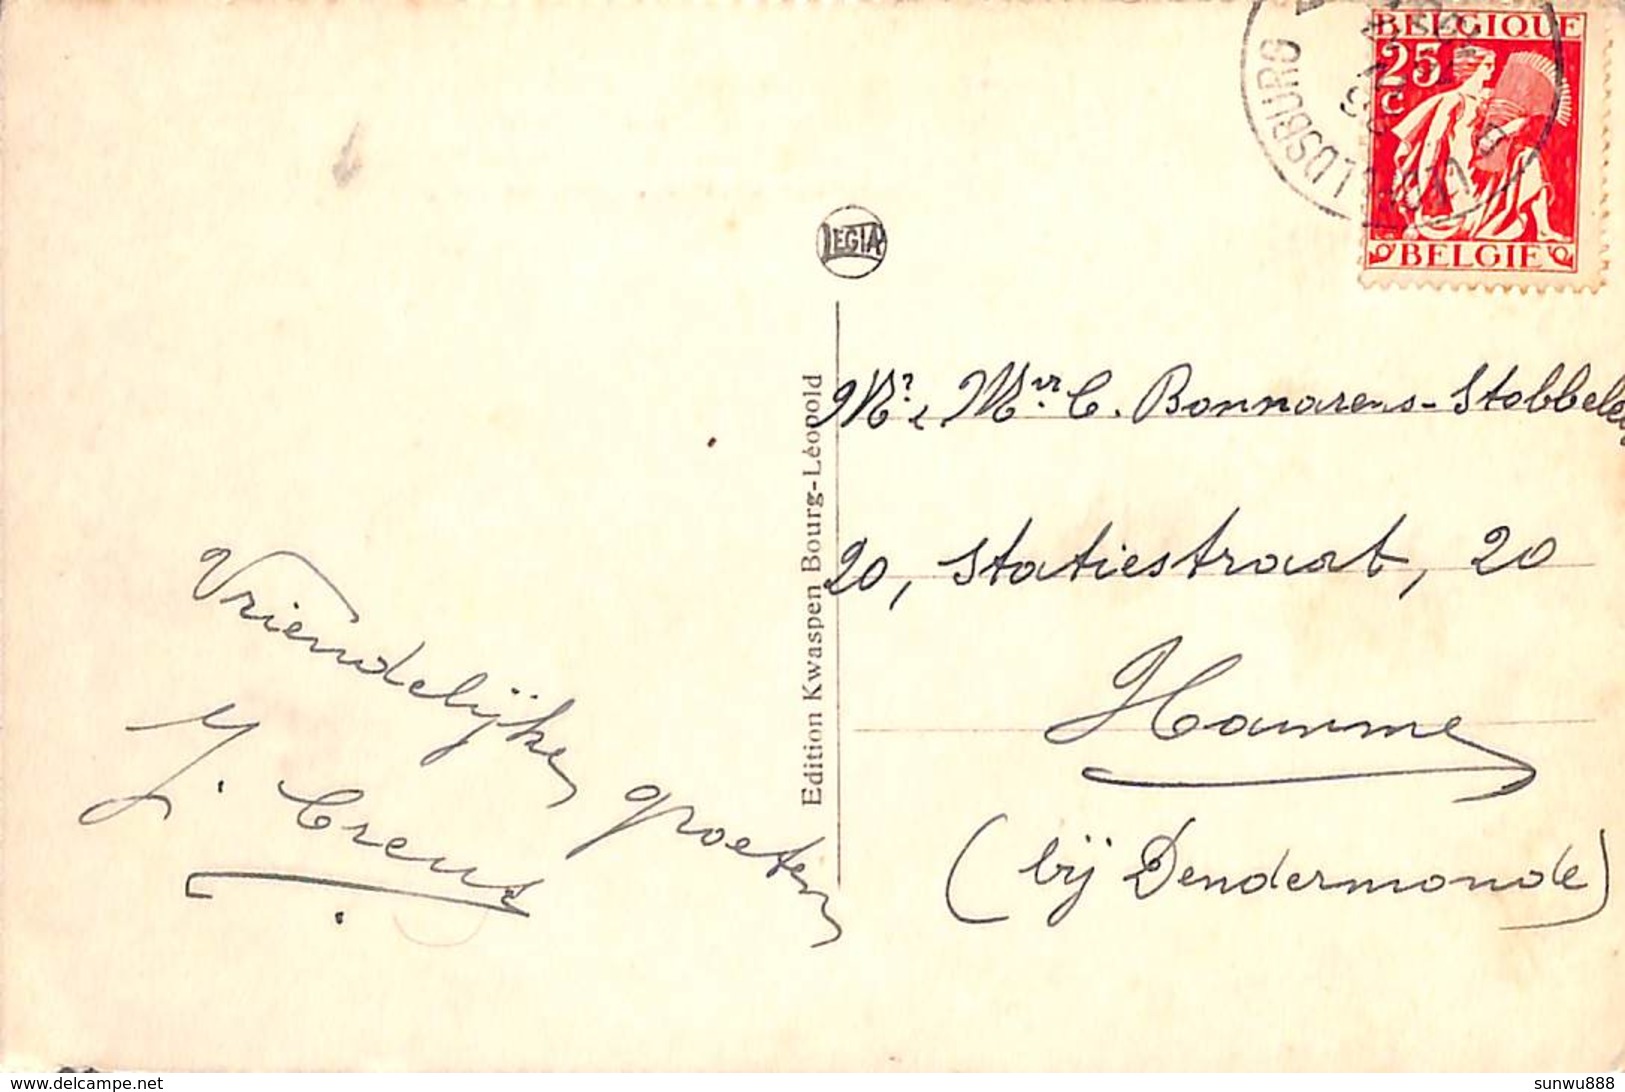 BELGIQUE
25
C
BELGIE
LDSBURG
LEGIA
Edition Kwaspen Bourg-Léopold
Mr. Mvr. C. Bonnarens-Stobbele
20, Statiestraat, 20
Hamme
(bij Dendermonde)
Vriendelijke groeten
J. Creus
www.delcampe.net
sunwu888